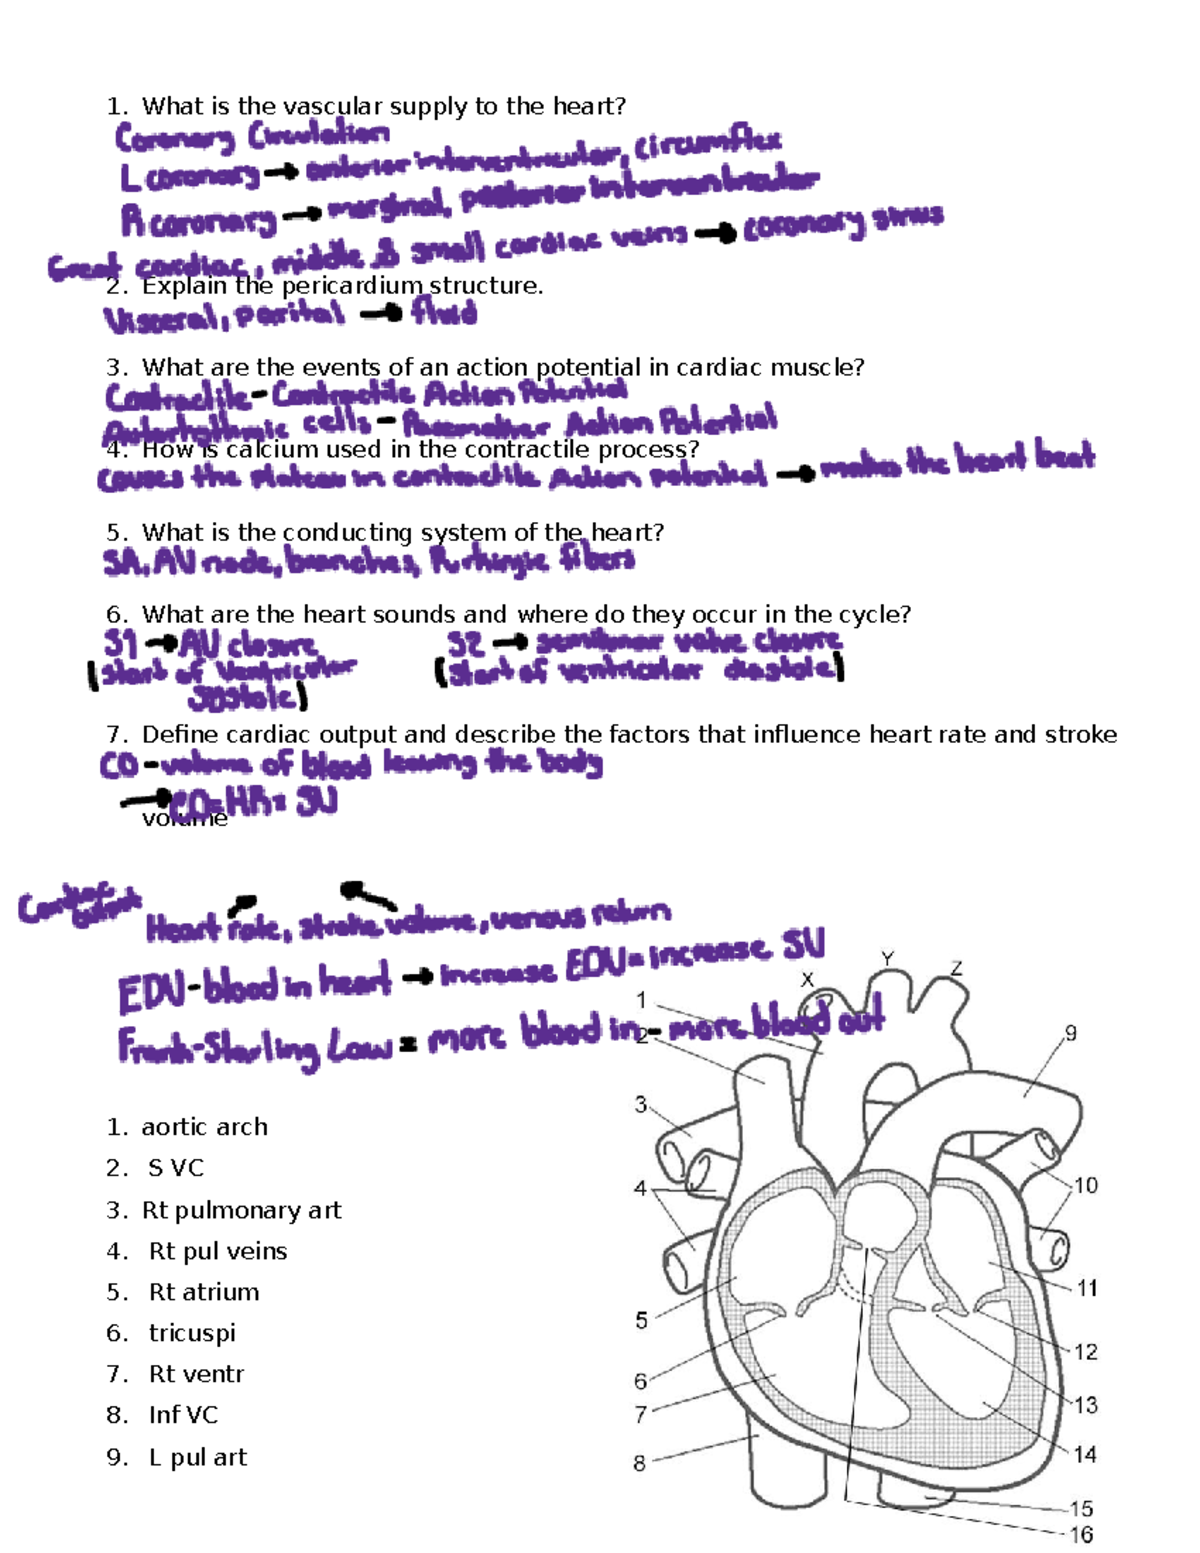 1. What is the vascular supply to the heart?
Coronary Circulation
L coronary → anterior interventricular, circumflex
R coronary → marginal, posterior interventricular
Great cardiac, middle & small cardiac veins → coronary sinus
2. Explain the pericardium structure.
Visceral, parital → fluid
3. What are the events of an action potential in cardiac muscle?
Contractile - Contractile Action Potential
Autorhythmic cells - Pacemaker Action Potential
4. How is calcium used in the contractile process?
Causes the plateau in contractile Action potential → makes the heart beat
5. What is the conducting system of the heart?
SA, AV node, branches, Purkingie fibers
6. What are the heart sounds and where do they occur in the cycle?
S1 → AV closure S2 → semilunar valve closure
(start of ventricular (start of ventricular diastole)
systole)
7. Define cardiac output and describe the factors that influence heart rate and stroke
CO - volume of blood leaving the body
→ CO = HR × SV
volume
Cardiac output
Heart rate, stroke volume, venous return
EDV - blood in heart → increase EDV = increase SV
Frank-Starling Law = more blood in - more blood out
X Y Z
1
2
9
3
1. aortic arch
2. S VC
4 10
3. Rt pulmonary art
4. Rt pul veins
5. Rt atrium
11
5
6. tricuspi
12
7. Rt ventr
6
13
8. Inf VC
7
14
9. L pul art
8
15
16